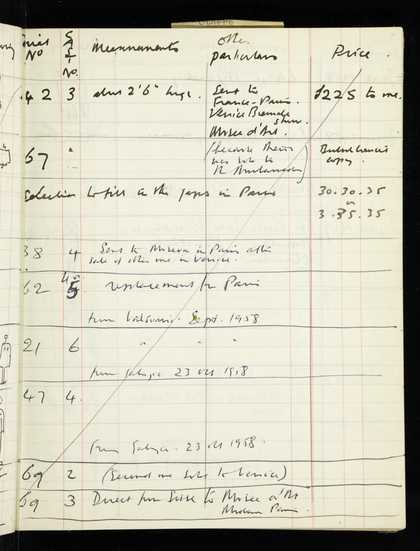 Serial No CAT No. Measurements other particulars Price.
42 3 about 2'6" high. Sent to France - Paris. Venice Biennale Musee d'Art. £225 to me.
67 " (because theirs was sold to the ) British Council copy.
Selection to fill in the gaps in Paris 30.30.35
3.35.35
38 4 Sent to Museum in Paris after sale of other one in Venice.
62 5 replacement for Paris
from Sept. 1958
21 6 " " "
from 23 Oct 1958
47 4.
From . 23 Oct 1958.
69 2 (Second one sold to Venice)
69 3 Direct from to Musee d'Art Moderne Paris